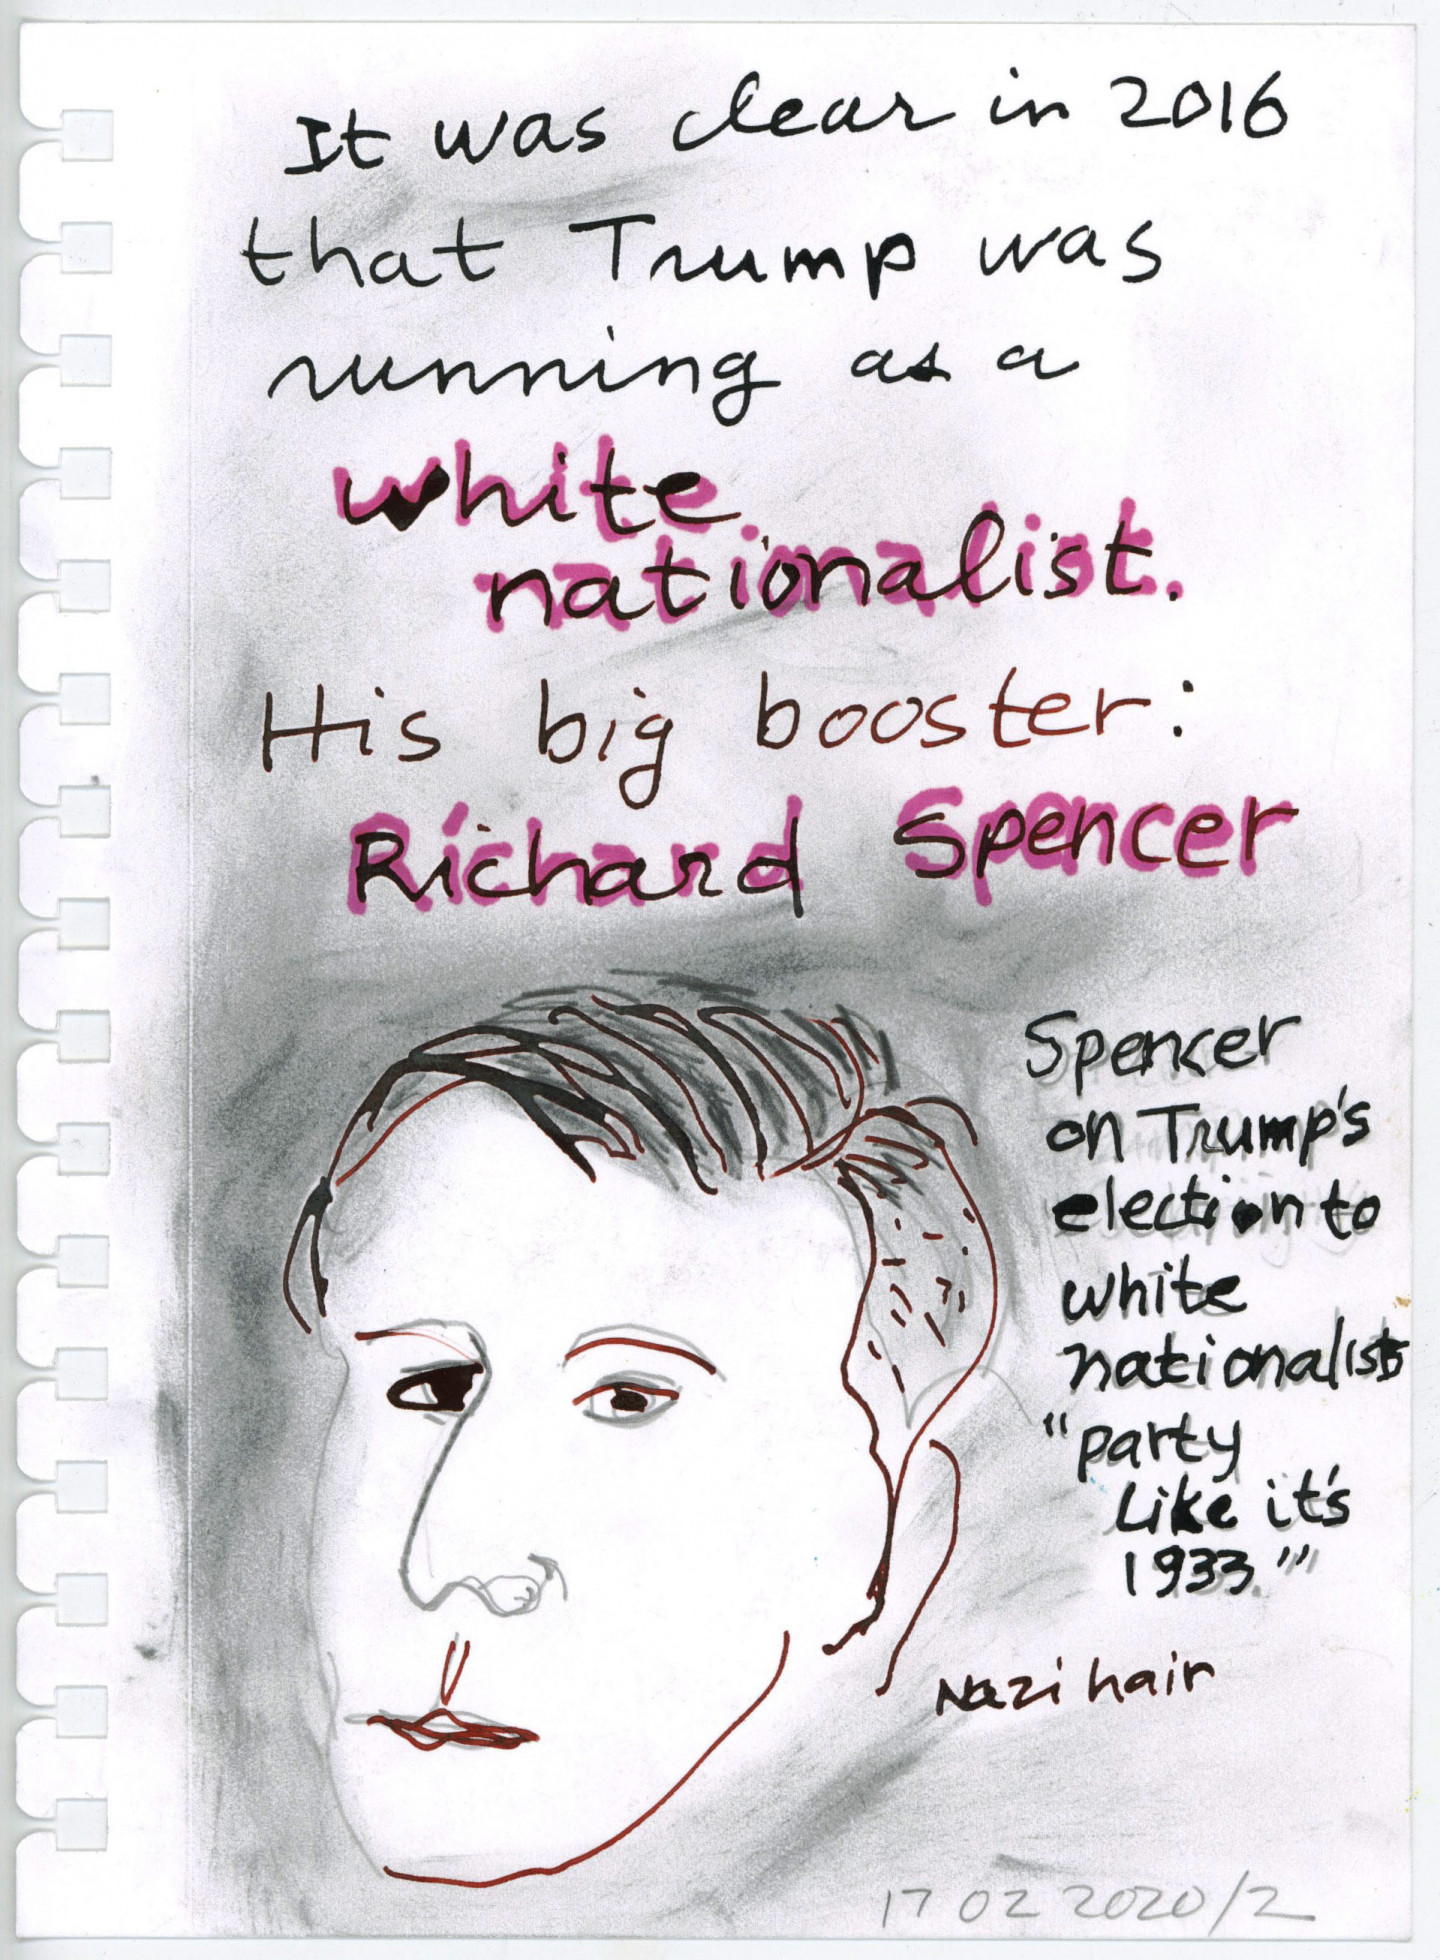 It was clear in 2016
that Trump was
running as a
white
nationalist.
His big booster:
Richard Spencer
Spencer
on Trump's
election to
white
nationalists
"party
like it's
1933."
Nazi hair
17 02 2020/2